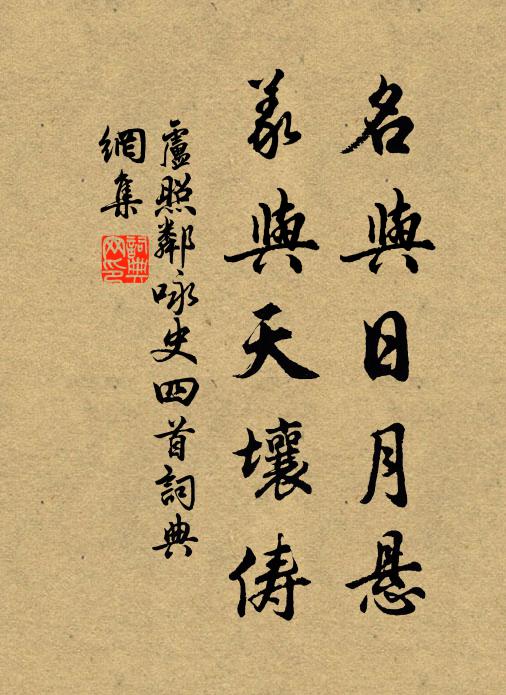 名與日月悬
義與天壤儔
盧照鄰咏史四首詞典
網集
詞典網印